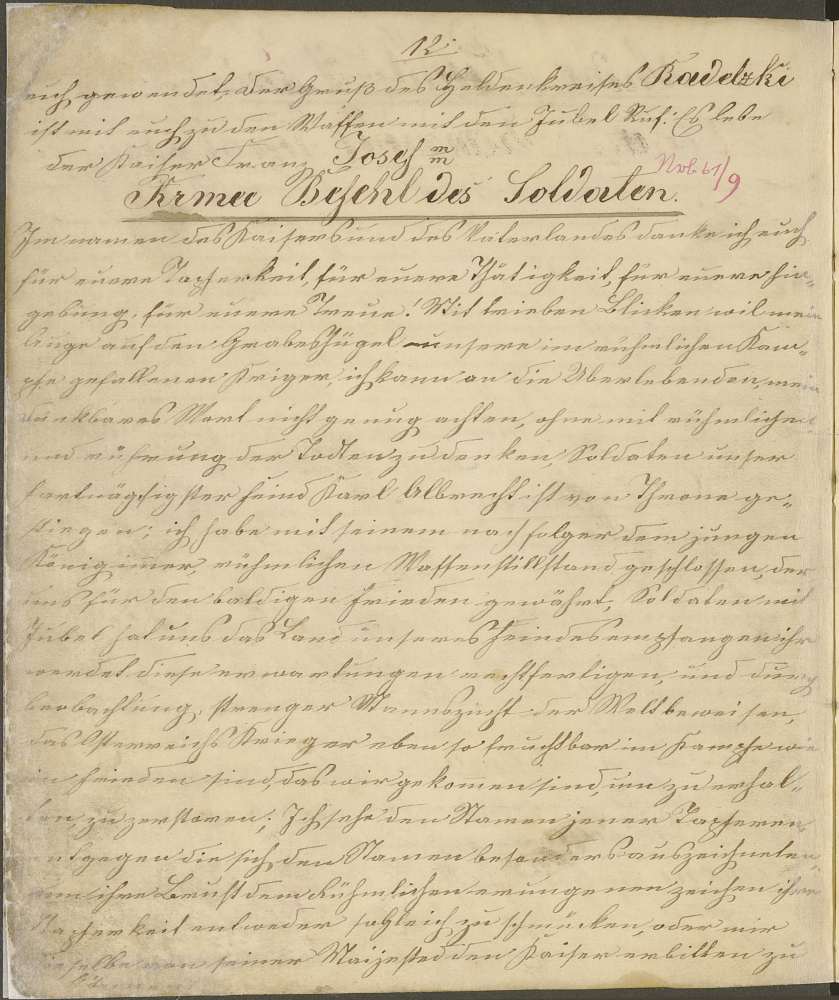 12.
euch gewendet. Der Gruß des Heldenkreises Radetzki
ist mit euch zu den Waffen mit den Jubel Ruf: Es lebe
der Kaiser Franz Josef
Nro. 61/9
Armee Befehl des Soldaten.
Im namen des Kaisers und des Vaterlandes danke ich euch
für euere Tapferkeit, für euere Thätigkeit, für euere Hin-
gebung, für euere Treue! Mit trieben Blicken wil mein
Auge auf den Grabeshügel unsere im rühmlichen Kam-
pfe gefallenen Kriger, ich kann an die Überlebenden, mein
dankbares Wort nicht genug achten, ohne mit rühmlichen
und rührung der Todten zu denken, Soldaten unser
hartnägigster feind Karl Albrecht ist von Throne ge-
stiegen; ich habe mit seinem nachfolger dem jungen
König immer, rühmlichen Waffenstillstand geschlossen, der
uns für den baldigen Frieden gewährt, Soldaten mit
Jubel hat uns das Land unseres Feindes empfangen ihr
werdet diese erwartungen rechtfertigen, und durch
beobachtung, strenger Mannszucht der Welt beweisen,
das Österreichs Krieger eben so fruchtbar im Kampfe wie
im frieden sind, das wir gekommen sind, um zu erhal-
ten, zu zerstören; Ich sehe den Namen jener Tapferen
entgegen die sich den Namen besonders auszeichneten,
um ihre Brust dem Rühmlichen erungenen zeichen ihrer
Tapferkeit entweder sogleich zu schmücken, oder mir
dieselbe von seiner Maijested den Kaiser erbitten zu